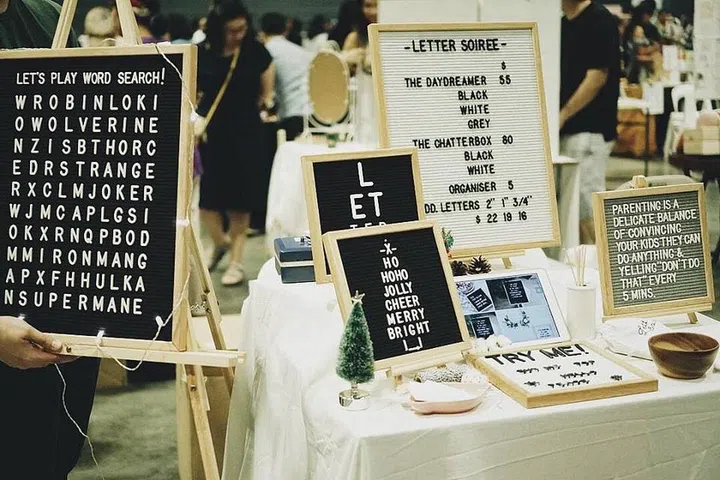 LET'S PLAY WORD SEARCH!
WROBINLOKI
OWOLVERINE
NZISBTHORC
EDRSTRANGE
RXCLMJOKER
WJMCAPLGSI
OKXRNQPBOD
MMIRONMANG
APXFHHULKA
NSUPERMANE
-LETTER SOIREE-
$
THE DAYDREAMER 55
BLACK
WHITE
GREY
THE CHATTERBOX 80
BLACK
WHITE
ORGANISER 5
DD. LETTERS 2" 1" 3/4"
$ 22 19 16
L
ET
-X-
HO
HOHO
JOLLY
CHEER
MERRY
BRIGHT
PARENTING IS A
DELICATE BALANCE
OF CONVINCING
YOUR KIDS THEY CAN
DO ANYTHING &
YELLING "DON'T DO
THAT" EVERY
5 MINS.
TRY ME!